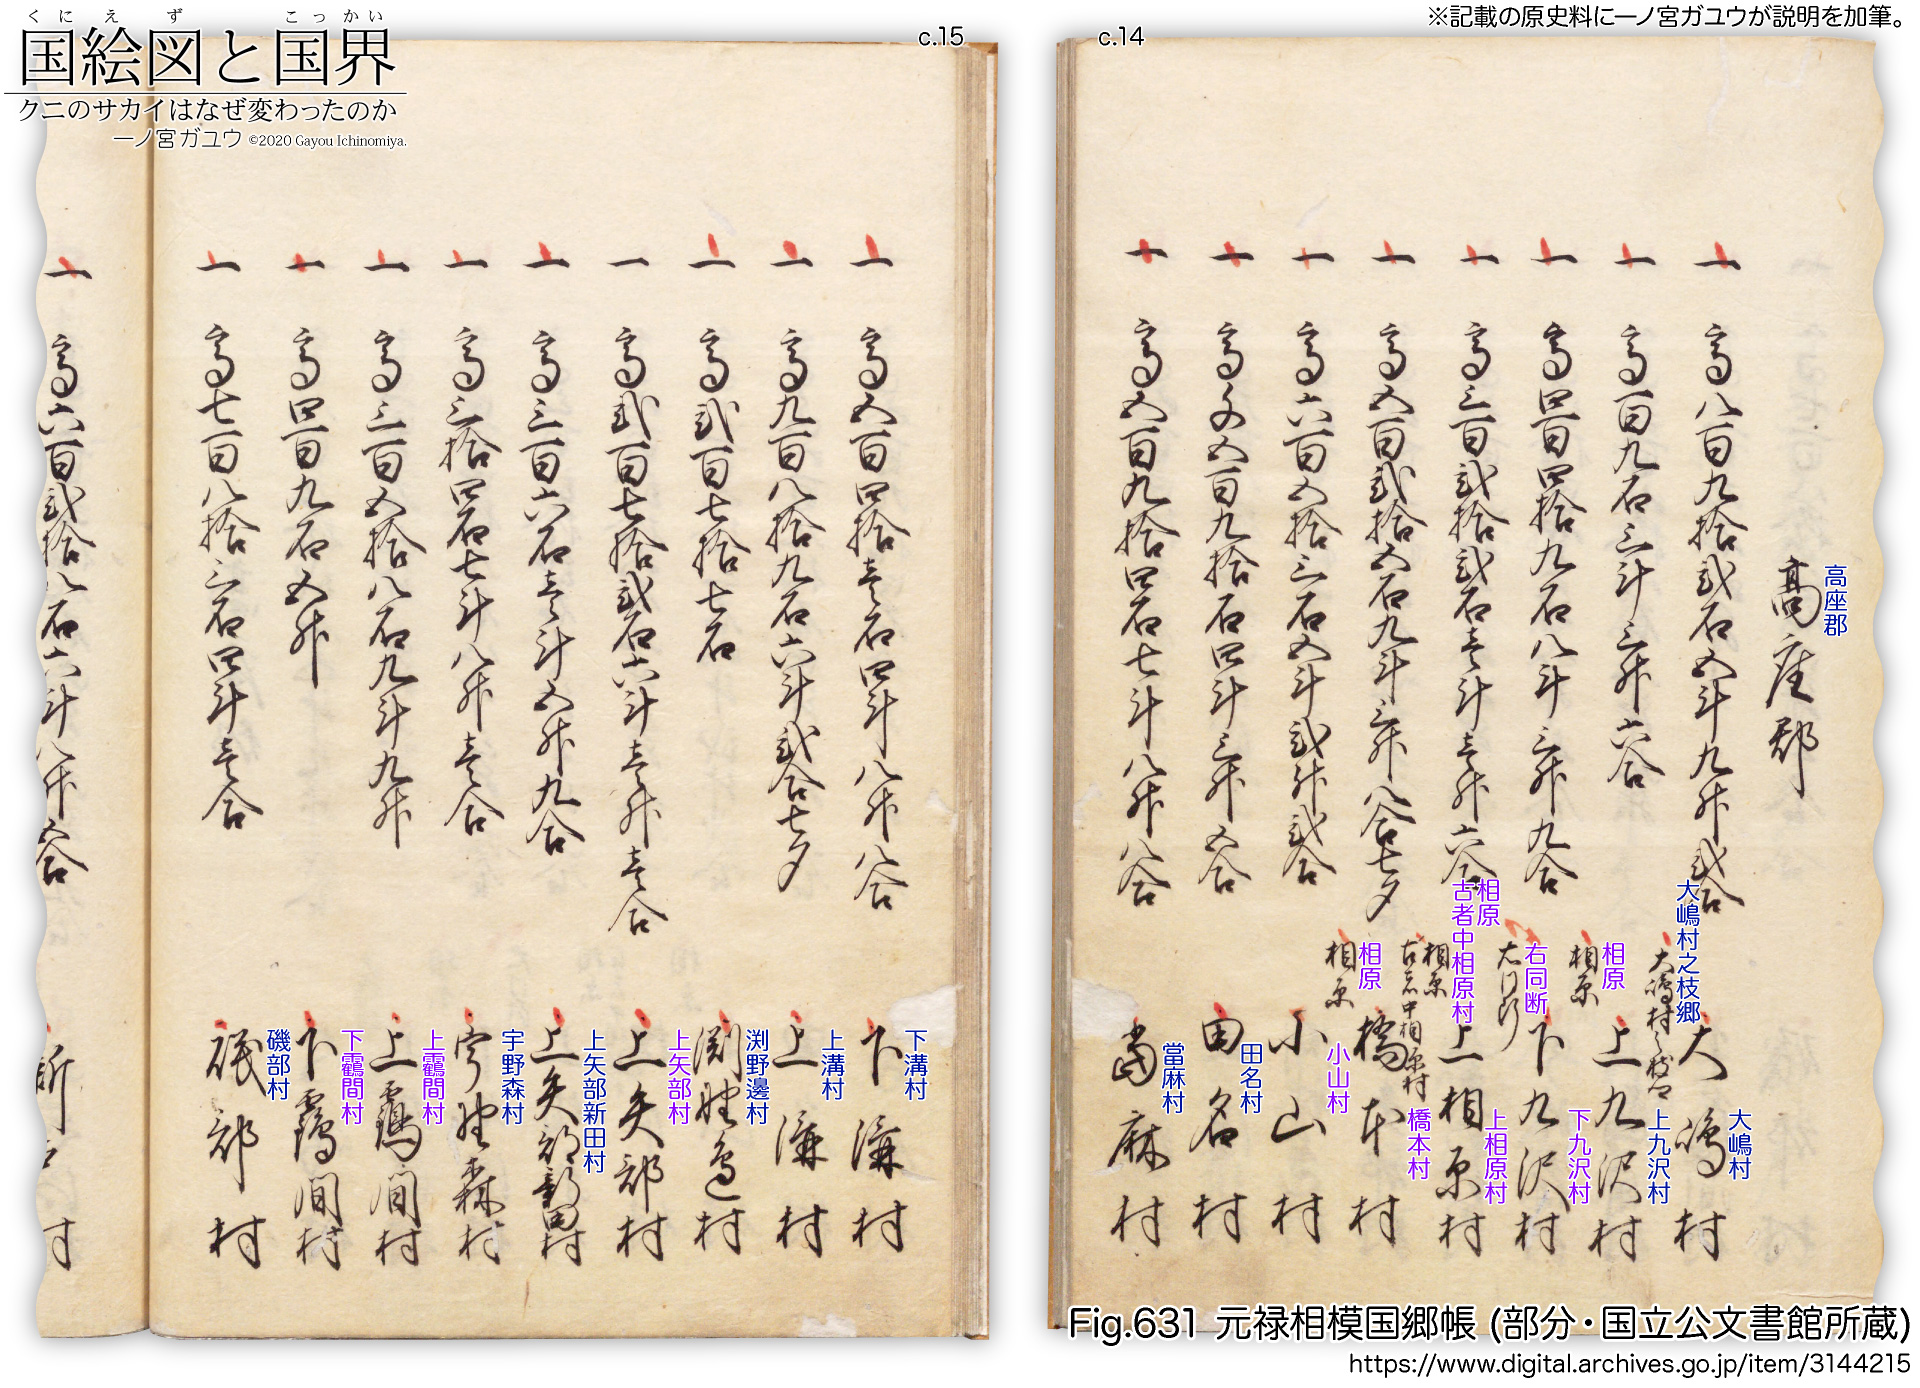 くにえず こっかい
国絵図と国界
クニのサカイはなぜ変わったのか
一ノ宮ガユウ ©2020 Gayou Ichinomiya.
※記載の原史料に一ノ宮ガユウが説明を加筆。
c.15
c.14
高座郡
高座郡
一 高八百九拾弐石五斗九升弐合
大嶋村之枝郷
大嶋村之枝郷
大嶋村
大嶋村
一 高百九石三斗三升六合
相原
相原
上九沢村
上九沢村
一 高四百四拾九石八斗三升九合
右同断
右同断
下九沢村
下九沢村
一 高三百弐拾弐石壱斗壱升六合
相原
古者中相原村
相原
古者中相原村
上相原村
上相原村
一 高五百弐拾五石九斗三升八合七夕
相原
相原
橋本村
橋本村
一 高六百五拾三石五斗弐升弐合
小山村
小山村
一 高千五百九拾石四斗三升五合
田名村
田名村
一 高五百九拾四石七斗八升八合
當麻村
當麻村
一 高五百四拾壱石四斗八升八合
下溝村
下溝村
一 高九百八拾九石六斗弐合七夕
上溝村
上溝村
一 高弐百七拾七石
渕野邊村
渕野邊村
一 高弐百七拾弐石六斗壱升壱合
上矢部村
上矢部村
一 高三百六石壱斗五升九合
上矢部新田村
上矢部新田村
一 高三拾四石七斗八升壱合
宇野森村
宇野森村
一 高三百五拾八石九斗九升
上靍間村
上靏間村
一 高四百九石五升
下靍間村
下靏間村
一 高七百八拾三石四斗壱合
磯部村
磯部村
一 高六百弐拾八石六斗八升五合
Fig.631 元禄相模国郷帳 (部分・国立公文書館所蔵)
https://www.digital.archives.go.jp/item/3144215